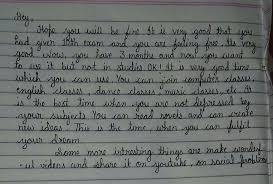 Hey,
Hope you will be fine. It is very good that you
had given 10th exam and you are feeling free. Its very
good. Now you have 3 months and now you want
to use it but not in studies OK! It is very good time
which you can use. You can join computer classes,
english classes, dance classes music classes, etc. It
is the best time when you are not depressed by
your subjects. You can read novels and can create
new ideas. This is the time when you can fulfil
your dream.
Some more intresting things are make wonderf
-ul videos and share it on youtube, on social